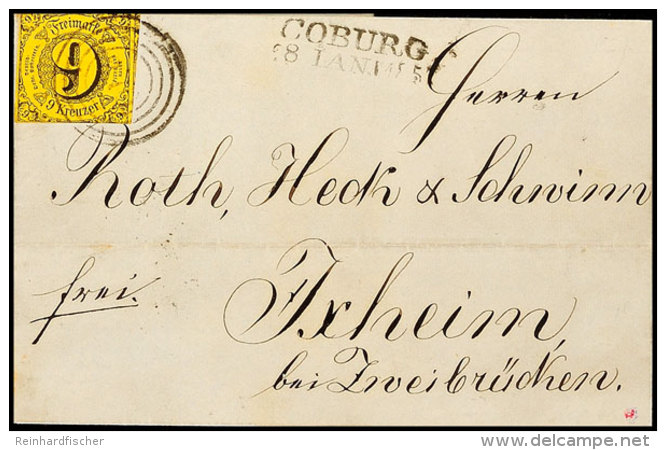 Freimarke
9
9 Kreuzer
COBURG
28 IAN
Herren
Roth, Heck & Schwinn
frei.
Ixheim,
bei Zweibrücken.
Reinhardfischer
delcampe.net